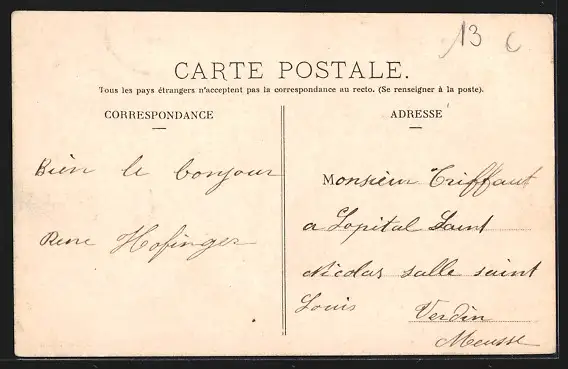 13 C
CARTE POSTALE.
Tous les pays étrangers n'acceptent pas la correspondance au recto. (Se renseigner à la poste).
CORRESPONDANCE
Bien le bonjour
Rene Hofinger
ADRESSE
Monsieur Triffaut
a Lopital Saint
Nicolas salle saint
Louis Verdin
Meusse